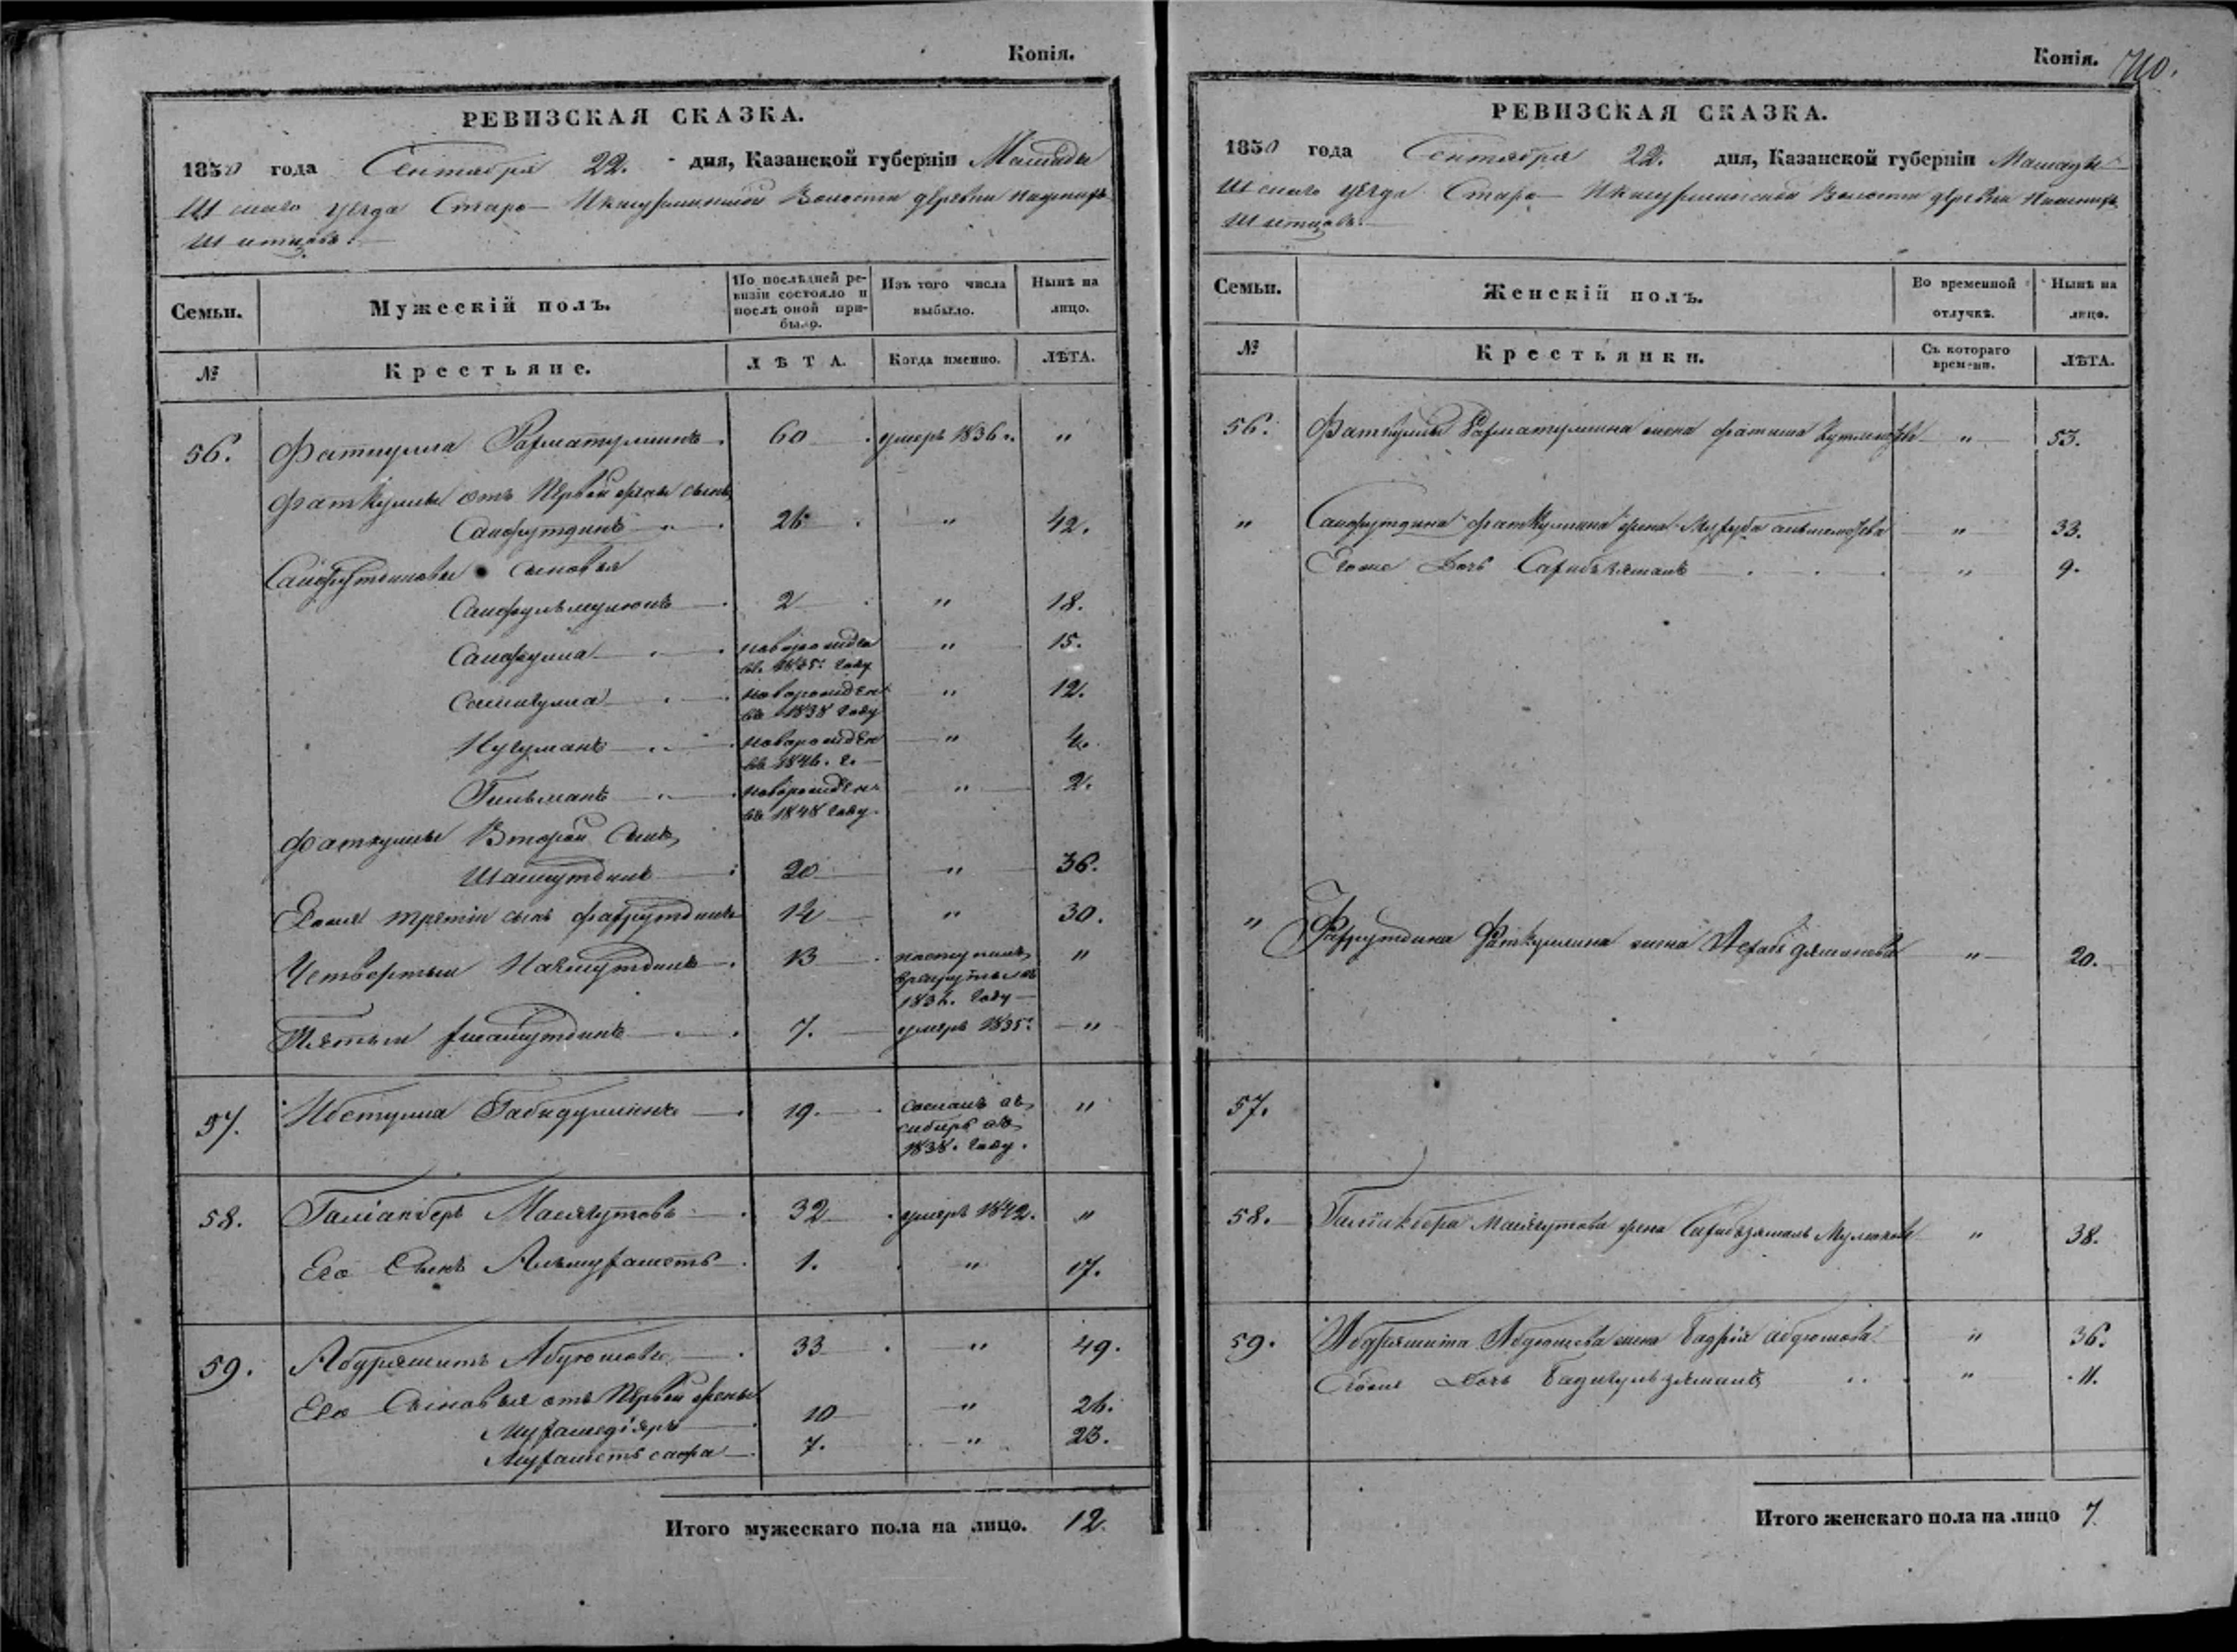 Копія.
РЕВИЗСКАЯ СКАЗКА.
1850 года Сентября 22. дня, Казанской губерніи Мамады
Шскаго уезда Старо Икшурминской Волости деревни
Семьи.
Мужескій полъ.
По послѣдней ре-
визіи состояло и
послѣ оной при-
было.
Изъ того числа
выбыло.
Нынѣ на
лицо.
№
Крестьяне.
ЛѢТА.
Когда именно.
ЛѢТА.
56. Фаткулла Рахматуллинъ 60 умеръ 1836 г. "
Фаткуллы отъ Первой жены сынъ
Сайфутдинъ 26 " 42.
Сайфутдиновы сыновья
Сайфульмулюкъ 2 " 18.
Сайфулла новорожден " 15.
въ 1835 году
новорожден " 12.
въ 1838 году
Нугуманъ новорожден " 4.
въ 1846. г.
Гильманъ новорожден " 2.
въ 1848 году
Фаткуллы Второй Сынъ
Шамсутдинъ 20 " 36.
Егоже третiй сынъ Фахрутдинъ 14 " 30.
Четвертый Назмутдинъ 13 поступилъ "
в рекруты въ
году
Пятый 7. умеръ 1835. "
57. Ибетулла Габидуллинъ 19. сосланъ въ "
сибирь въ
1838. году.
58. Галіакберъ Масягутовъ 32 умеръ 1842. "
Его Сынъ Альмухаметъ 1. " 17.
59. Абдряшитъ Абдюшовъ 33 " 49.
Его Сыновья отъ Первой жены
Мухамедіяръ 10 " 26.
Мухаметъ сафа 7. " 23.
Итого мужескаго пола на лицо. 12.
Копія. 710.
РЕВИЗСКАЯ СКАЗКА.
1850 года Сентября 22. дня, Казанской губерніи Мамады
Шскаго уезда Старо Икшурминской Волости деревни
Семьи.
Женскій полъ.
Во временной
отлучкѣ.
Нынѣ на
лицо.
№
Крестьянки.
Съ котораго
времени.
ЛѢТА.
56. Фаткуллы Рахматуллина жена Фатима " 53.
" Сайфутдина Фаткуллина жена " 33.
Егоже Дочь " 9.
" Фахрутдина Фаткуллина жена " 20.
57.
58. Галіакбера Масягутова жена " 38.
59. Абдряшита Абдюшева жена Бадрія Абдюшова " 36.
Егоже Дочь " 11.
Итого женскаго пола на лицо 7